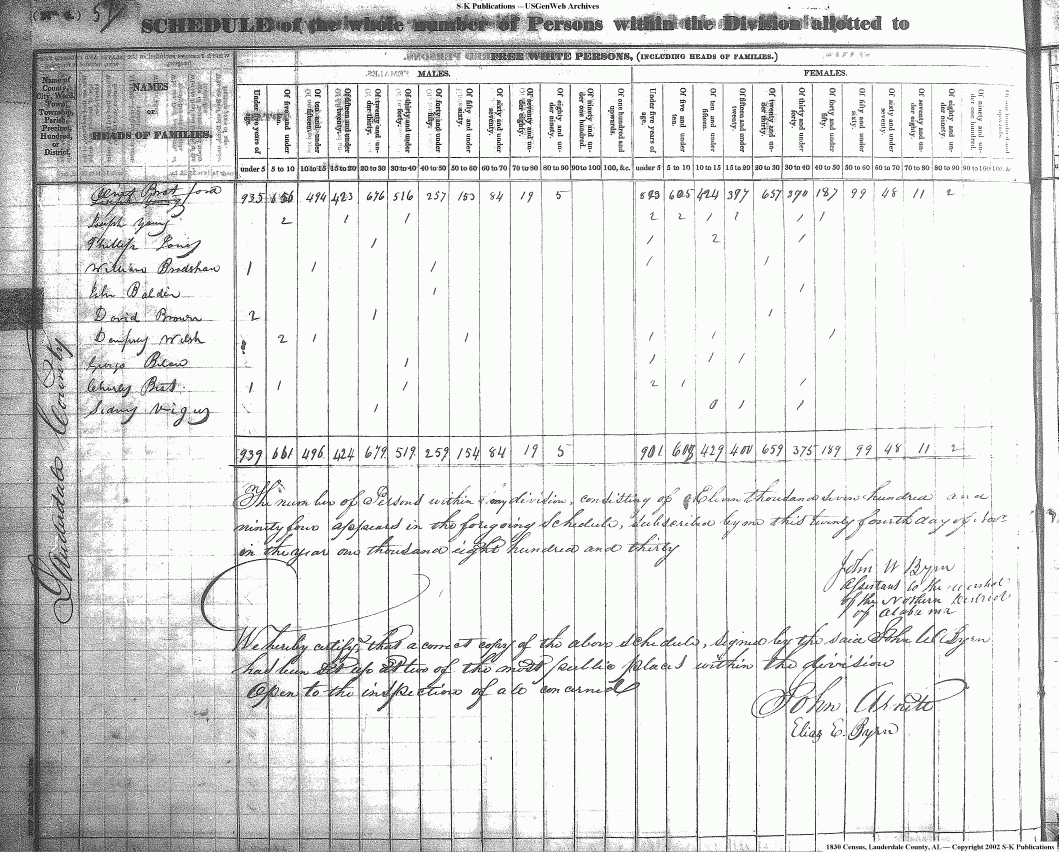 S-K Publications — USGenWeb Archives
(No 4.) 57
SCHEDULE of the whole number of Persons within the Division allotted to
FREE WHITE PERSONS, (INCLUDING HEADS OF FAMILIES.)
MALES. FEMALES.
Name of County, City, Ward, Town, Township, Parish, Precinct, Hundred, or District.
NAMES
OF
HEADS OF FAMILIES.
Under five years of age. Of five and under ten. Of ten and under fifteen. Of fifteen and under twenty. Of twenty and under thirty. Of thirty and under forty. Of forty and under fifty. Of fifty and under sixty. Of sixty and under seventy. Of seventy and under eighty. Of eighty and under ninety. Of ninety and under one hundred. Of one hundred and upwards. Under five years of age. Of five and under ten. Of ten and under fifteen. Of fifteen and under twenty. Of twenty and under thirty. Of thirty and under forty. Of forty and under fifty. Of fifty and under sixty. Of sixty and under seventy. Of seventy and under eighty. Of eighty and under ninety. Of ninety and under one hundred.
under 5 5 to 10 10 to 15 15 to 20 20 to 30 30 to 40 40 to 50 50 to 60 60 to 70 70 to 80 80 to 90 90 to 100 100, &c. under 5 5 to 10 10 to 15 15 to 20 20 to 30 30 to 40 40 to 50 50 to 60 60 to 70 70 to 80 80 to 90 90 to 100 100, &c.
935 656 494 423 676 516 257 153 84 19 5 893 605 424 397 657 370 187 99 48 11 2
Joseph Young 2 1 1 2 2 1 1 1 1
Phillip Jones 1 1 2 1
William Bradshaw 1 1 1 1 1
John Balden 1 1
David Brown 2 1 1
Dempsey Welsh 2 1 1 1 1 1
George Bean 1 1 1 1
Charles Best 1 1 1 2 1 1
Sidney Vigus 1 0 1 1
939 661 496 424 679 519 259 154 84 19 5 901 608 429 400 659 375 189 99 48 11 2
Lauderdale County
The number of Persons within my division, consisting of Eleven thousand seven hundred and
ninety four appears in the foregoing Schedule, subscribed by me this twenty fourth day of Novr
in the year one thousand eight hundred and thirty
John W Byrn
Assistant to the marshal
of the Northern District
of Alabama
We hereby certify, that a correct copy of the above schedule, signed by the said John W Byrn
had been set up at two of the most public places within the division
Open to the inspection of all concerned
John Arnett
Elias E. Byrn
1830 Census, Lauderdale County, AL — Copyright 2002 S-K Publications